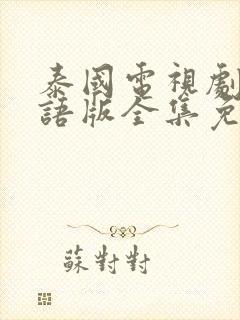 泰國電視劇
語版全集免
蘇對對